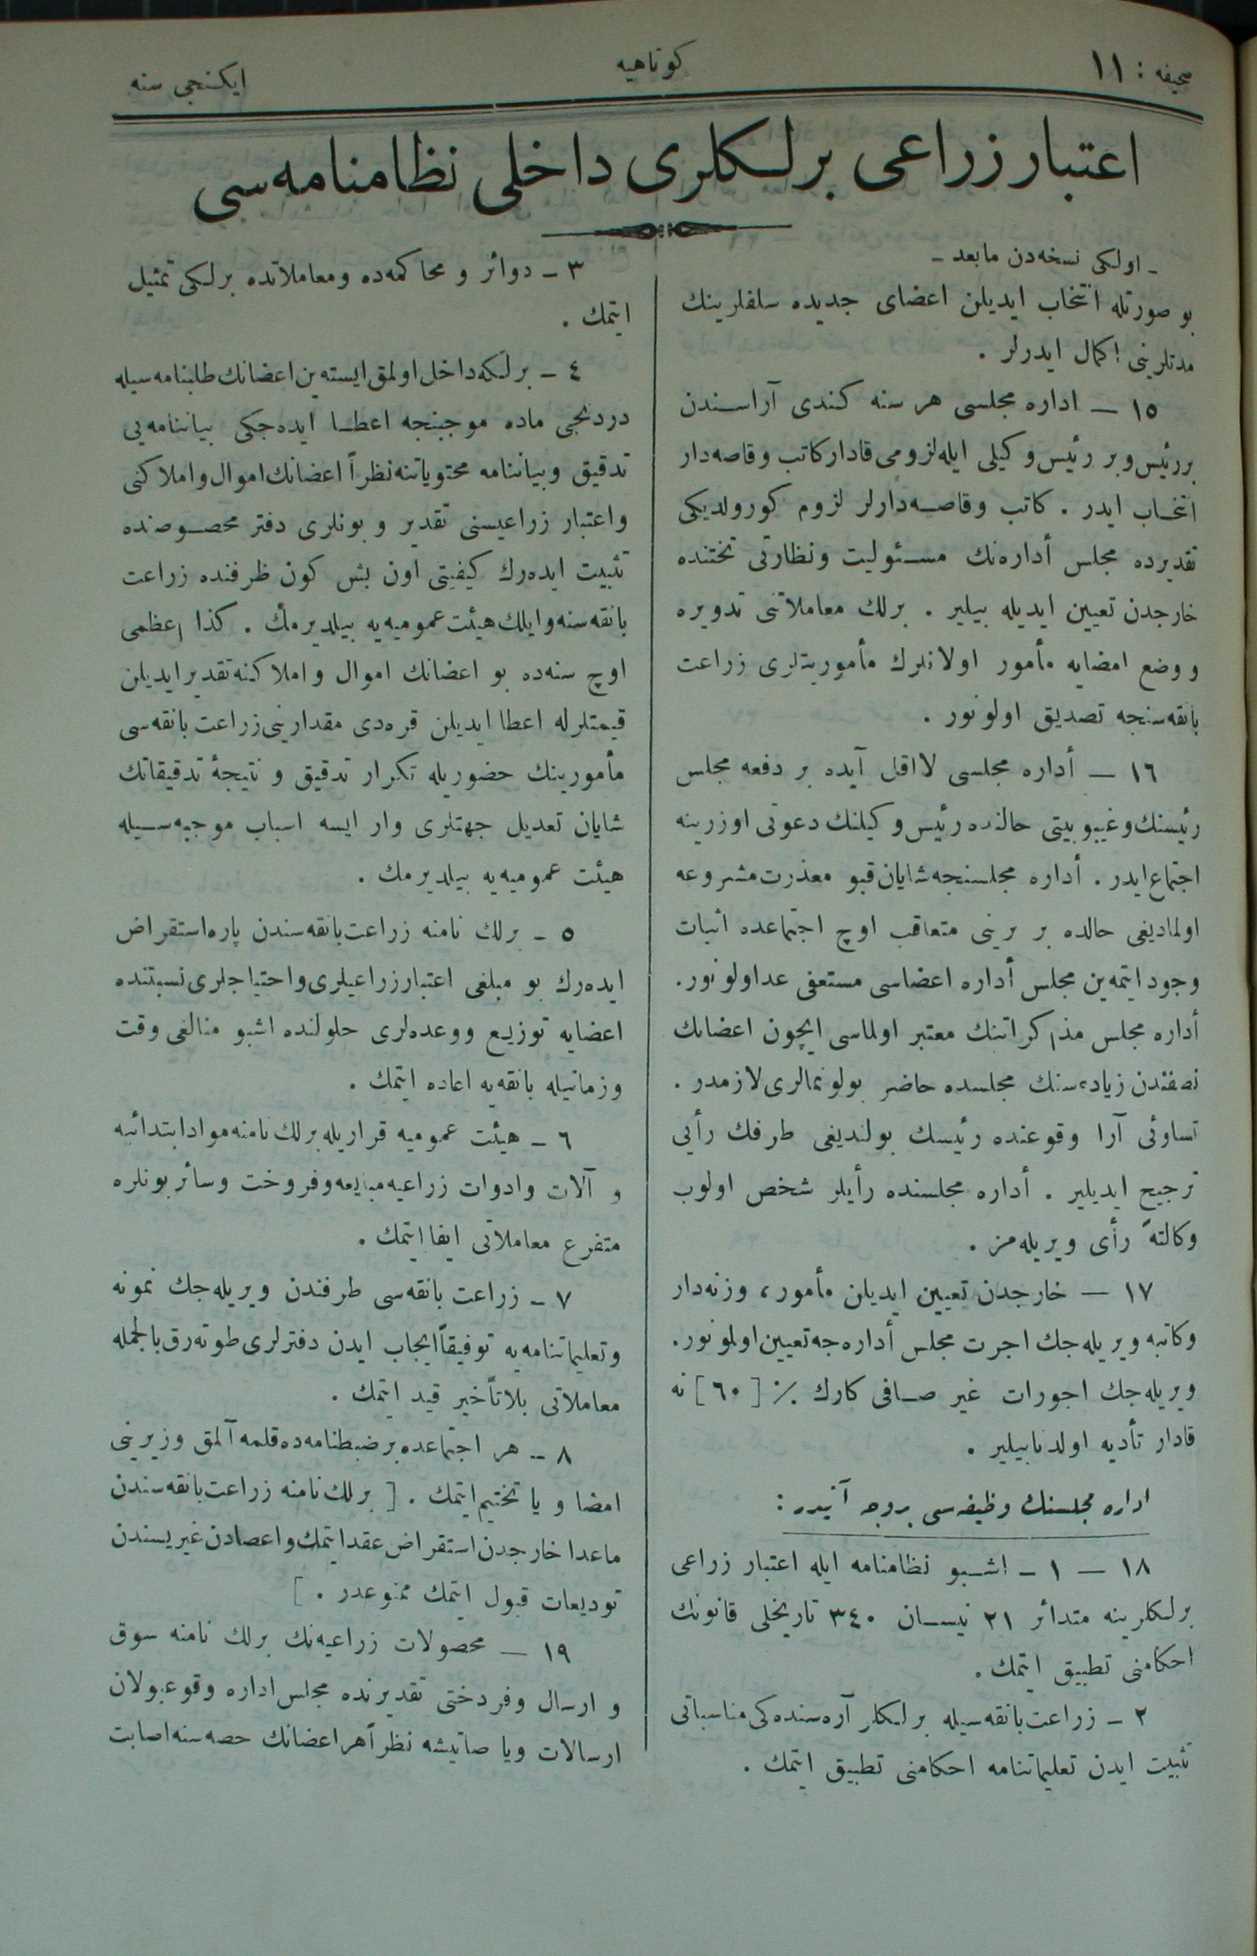 صحیفه : ١١
كوتاهیه
ایكنجی سنه
اعتبار زراعی برلكلری داخلی نظامنامه‌سی
ـ اولكی نسخه‌دن مابعد ـ
بو صورتله انتخاب ایدیلن اعضای جدیده سلفلرینك
مدتلرینی اكمال ایدرلر .
١٥ — اداره مجلسی هر سنه كندی آراسندن
بررئیس و بر رئیس وكیلی ایله لزومی قادار كاتب و قاصه‌دار
انتخاب ایدر . كاتب و قاصه‌دارلر لزوم كورولدیكی
تقدیرده مجلس أداره‌نك مسئولیت و نظارتی تختنده
خارجدن تعیین ایدیله بیلیر . برلك معاملاتنی تدویره
و وضع امضایه مأمور اولانلرك مأموریتلری زراعت
بانقه‌سنجه تصدیق اولونور .
١٦ — أداره مجلسی لااقل آیده بر دفعه مجلس
رئیسنك و غیبوبیتی حالنده رئیس وكیلنك دعوتی اوزرینه
اجتماع ایدر . أداره مجلسنجه شایان قبو معذرت مشروعه
اولمادیغی حالده بر برینی متعاقب اوچ اجتماعده اثبات
وجود ایتمه‌ین مجلس أداره اعضاسی مستعفی عد اولونور.
أداره مجلس مذاكراتنك معتبر اولماسی ایچون اعضانك
نصفندن زیاده‌سنك مجلسده حاضر بولونمالری لازمدر .
تساوئی آرا وقوعنده رئیسك بولندیغی طرفك رأیی
ترجیح ایدیلیر . أداره مجلسنده رأیلر شخص اولوب
وكالتهً رأی ویریله‌مز .
١٧ — خارجدن تعیین ایدیلن مأمور ، وزنه‌دار
وكاتبه ویریله‌جك اجرت مجلس أداره‌جه تعیین اولونور.
ویریله‌جك اجورات غیر صافی كارك ٪ [٦٠] نه
قادار تأدیه اولنابیلیر .
اداره مجلسنك وظیفه‌سی بروجه آتیدر :
١٨ — ١ ـ اشبو نظامنامه ایله اعتبار زراعی
برلكلرینه متدائر ٢١ نیسان ٣٤٠ تاریخلی قانونك
احكامنی تطبیق ایتمك.
٢ ـ زراعت بانقه‌سیله برلكلر آره‌سنده‌كی مناسباتی
تثبیت ایدن تعلیماتنامه احكامنی تطبیق ایتمك .
٣ ـ دوائر و محاكمه‌ده و معاملاتده برلكی تمثیل
ایتمك .
٤ ـ برلكه داخل اولمق ایسته‌ین اعضانك طلبنامه‌سیله
دردنجی ماده موجبنجه اعطا ایده‌جكی بیاننامه‌یی
تدقیق و بیاننامه محتویاتنه نظراً اعضانك اموال و املاكنی
و اعتبار زراعیسنی تقدیر و بونلری دفتر مخصوصنده
تثبیت ایده‌رك كیفیتی اون بش كون ظرفنده زراعت
بانقه‌سنه و ایلك هیئت عمومیه‌یه بیلدیرمك . كذا اعظمی
اوچ سنه‌ده بو اعضانك اموال و املاكنه تقدیر ایدیلن
قیمتلرله اعطا ایدیلن قره‌دی مقدارینی زراعت بانقه‌سی
مأمورینك حضوریله تكرار تدقیق و نتیجۀ تدقیقاتك
شایان تعدیل جهتلری وار ایسه اسباب موجبه‌سیله
هیئت عمومیه‌یه بیلدیرمك .
٥ ـ برلك نامنه زراعت بانقه‌سندن پاره استقراض
ایده‌رك بو مبلغی اعتبار زراعیلری و احتیاجلری نسبتنده
اعضایه توزیع و وعده‌لری حلولنده اشبو مبالغی وقت
و زمانیله بانقه‌یه اعاده ایتمك .
٦ ـ هیئت عمومیه قراریله برلك نامنه مواد ابتدائیه
و آلات و ادوات زراعیه مبایعه و فروخت و سائر بونلره
متفرع معاملاتی ایفا ایتمك .
٧ ـ زراعت بانقه‌سی طرفندن ویریله‌جك نمونه
و تعلیماتنامه‌یه توفیقاً ایجاب ایدن دفترلری طوته‌رق بالجمله
معاملاتی بلا تأخیر قید ایتمك .
٨ ـ هر اجتماعده بر ضبطنامه‌ده قلمه آلمق و زیرینی
امضا و یا تختیم ایتمك . [ برلك نامنه زراعت بانقه‌سندن
ماعدا خارجدن استقراض عقد ایتمك و اعضادن غیریسندن
تودیعات قبول ایتمك ممنوعدر . ]
١٩ — محصولات زراعیه‌نك برلك نامنه سوق
و ارسال و فروختی تقدیرنده مجلس اداره وقوعبولان
ارسالات و یا صاتیشه نظراً هر اعضانك حصه‌سنه اصابت